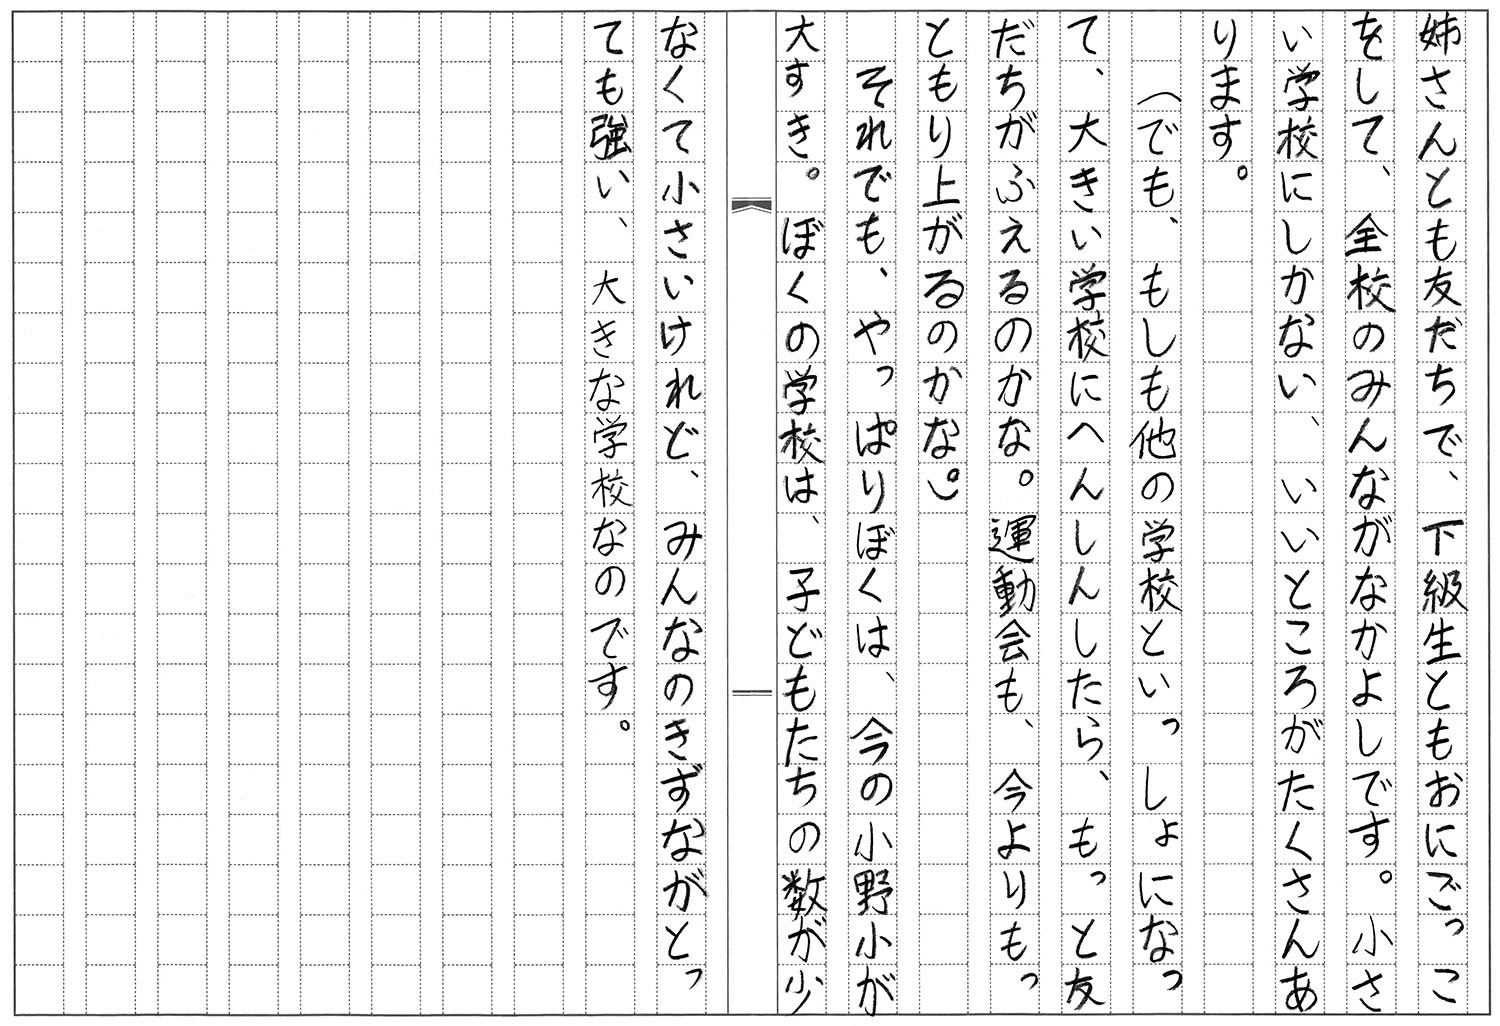 姉さんとも友だちで、下級生ともおにごっこ
をして、全校のみんながなかよしです。小さ
い学校にしかない、いいところがたくさんあ
ります。
（でも、もしも他の学校といっしょになっ
て、大きい学校にへんしんしたら、もっと友
だちがふえるのかな。運動会も、今よりもっ
ともり上がるのかな。）
それでも、やっぱりぼくは、今の小野小が
大すき。ぼくの学校は、子どもたちの数が少
なくて小さいけれど、みんなのきずながとっ
ても強い、大きな学校なのです。